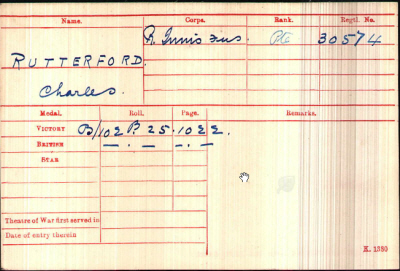 Name. Corps. Rank. Regtl. No.
R. Innis Fus. Pte 30574
RUTTERFORD.
Charles.
Medal. Roll. Page. Remarks.
VICTORY B/102 B25. 1022.
BRITISH —.— —.—
STAR
Theatre of War first served in
Date of entry therein
K. 1380